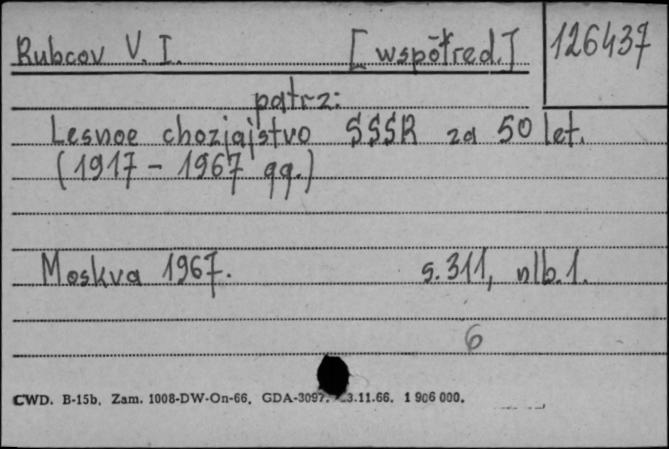 Rubcov V. I. [współred.] 126437
patrz:
Lesnoe chozjajstvo SSSR za 50 let.
(1917 - 1967 gg.)
Moskva 1967. s. 311, nlb. 1.
6
CWD. B-15b. Zam. 1008-DW-On-66. GDA-3097. 3.11.66. 1 906 000.